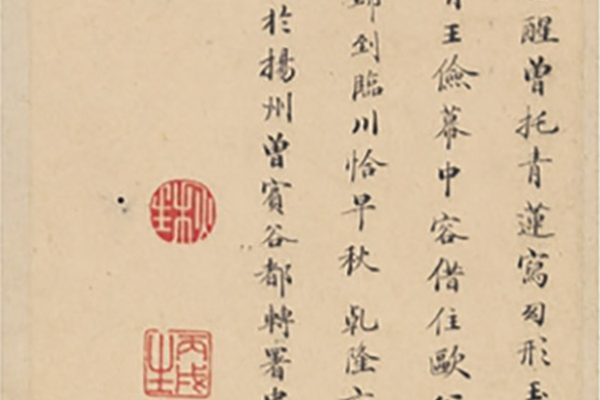 醒曾托青蓮寫幻形
王儉幕中容借住歐
到臨川恰早秋乾隆
於揚州曾賓谷都轉署
丙戌